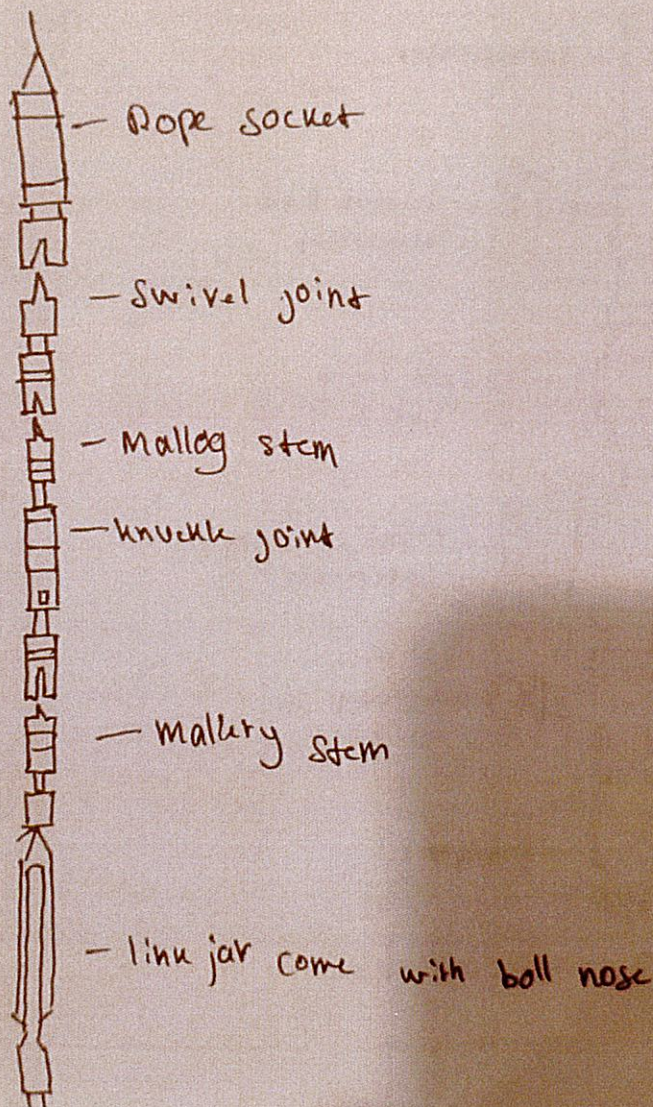 - Rope socket
- Swivel joint
- Mallog stem
- knuckle joint
- mallery stem
- link jar come with boll nose